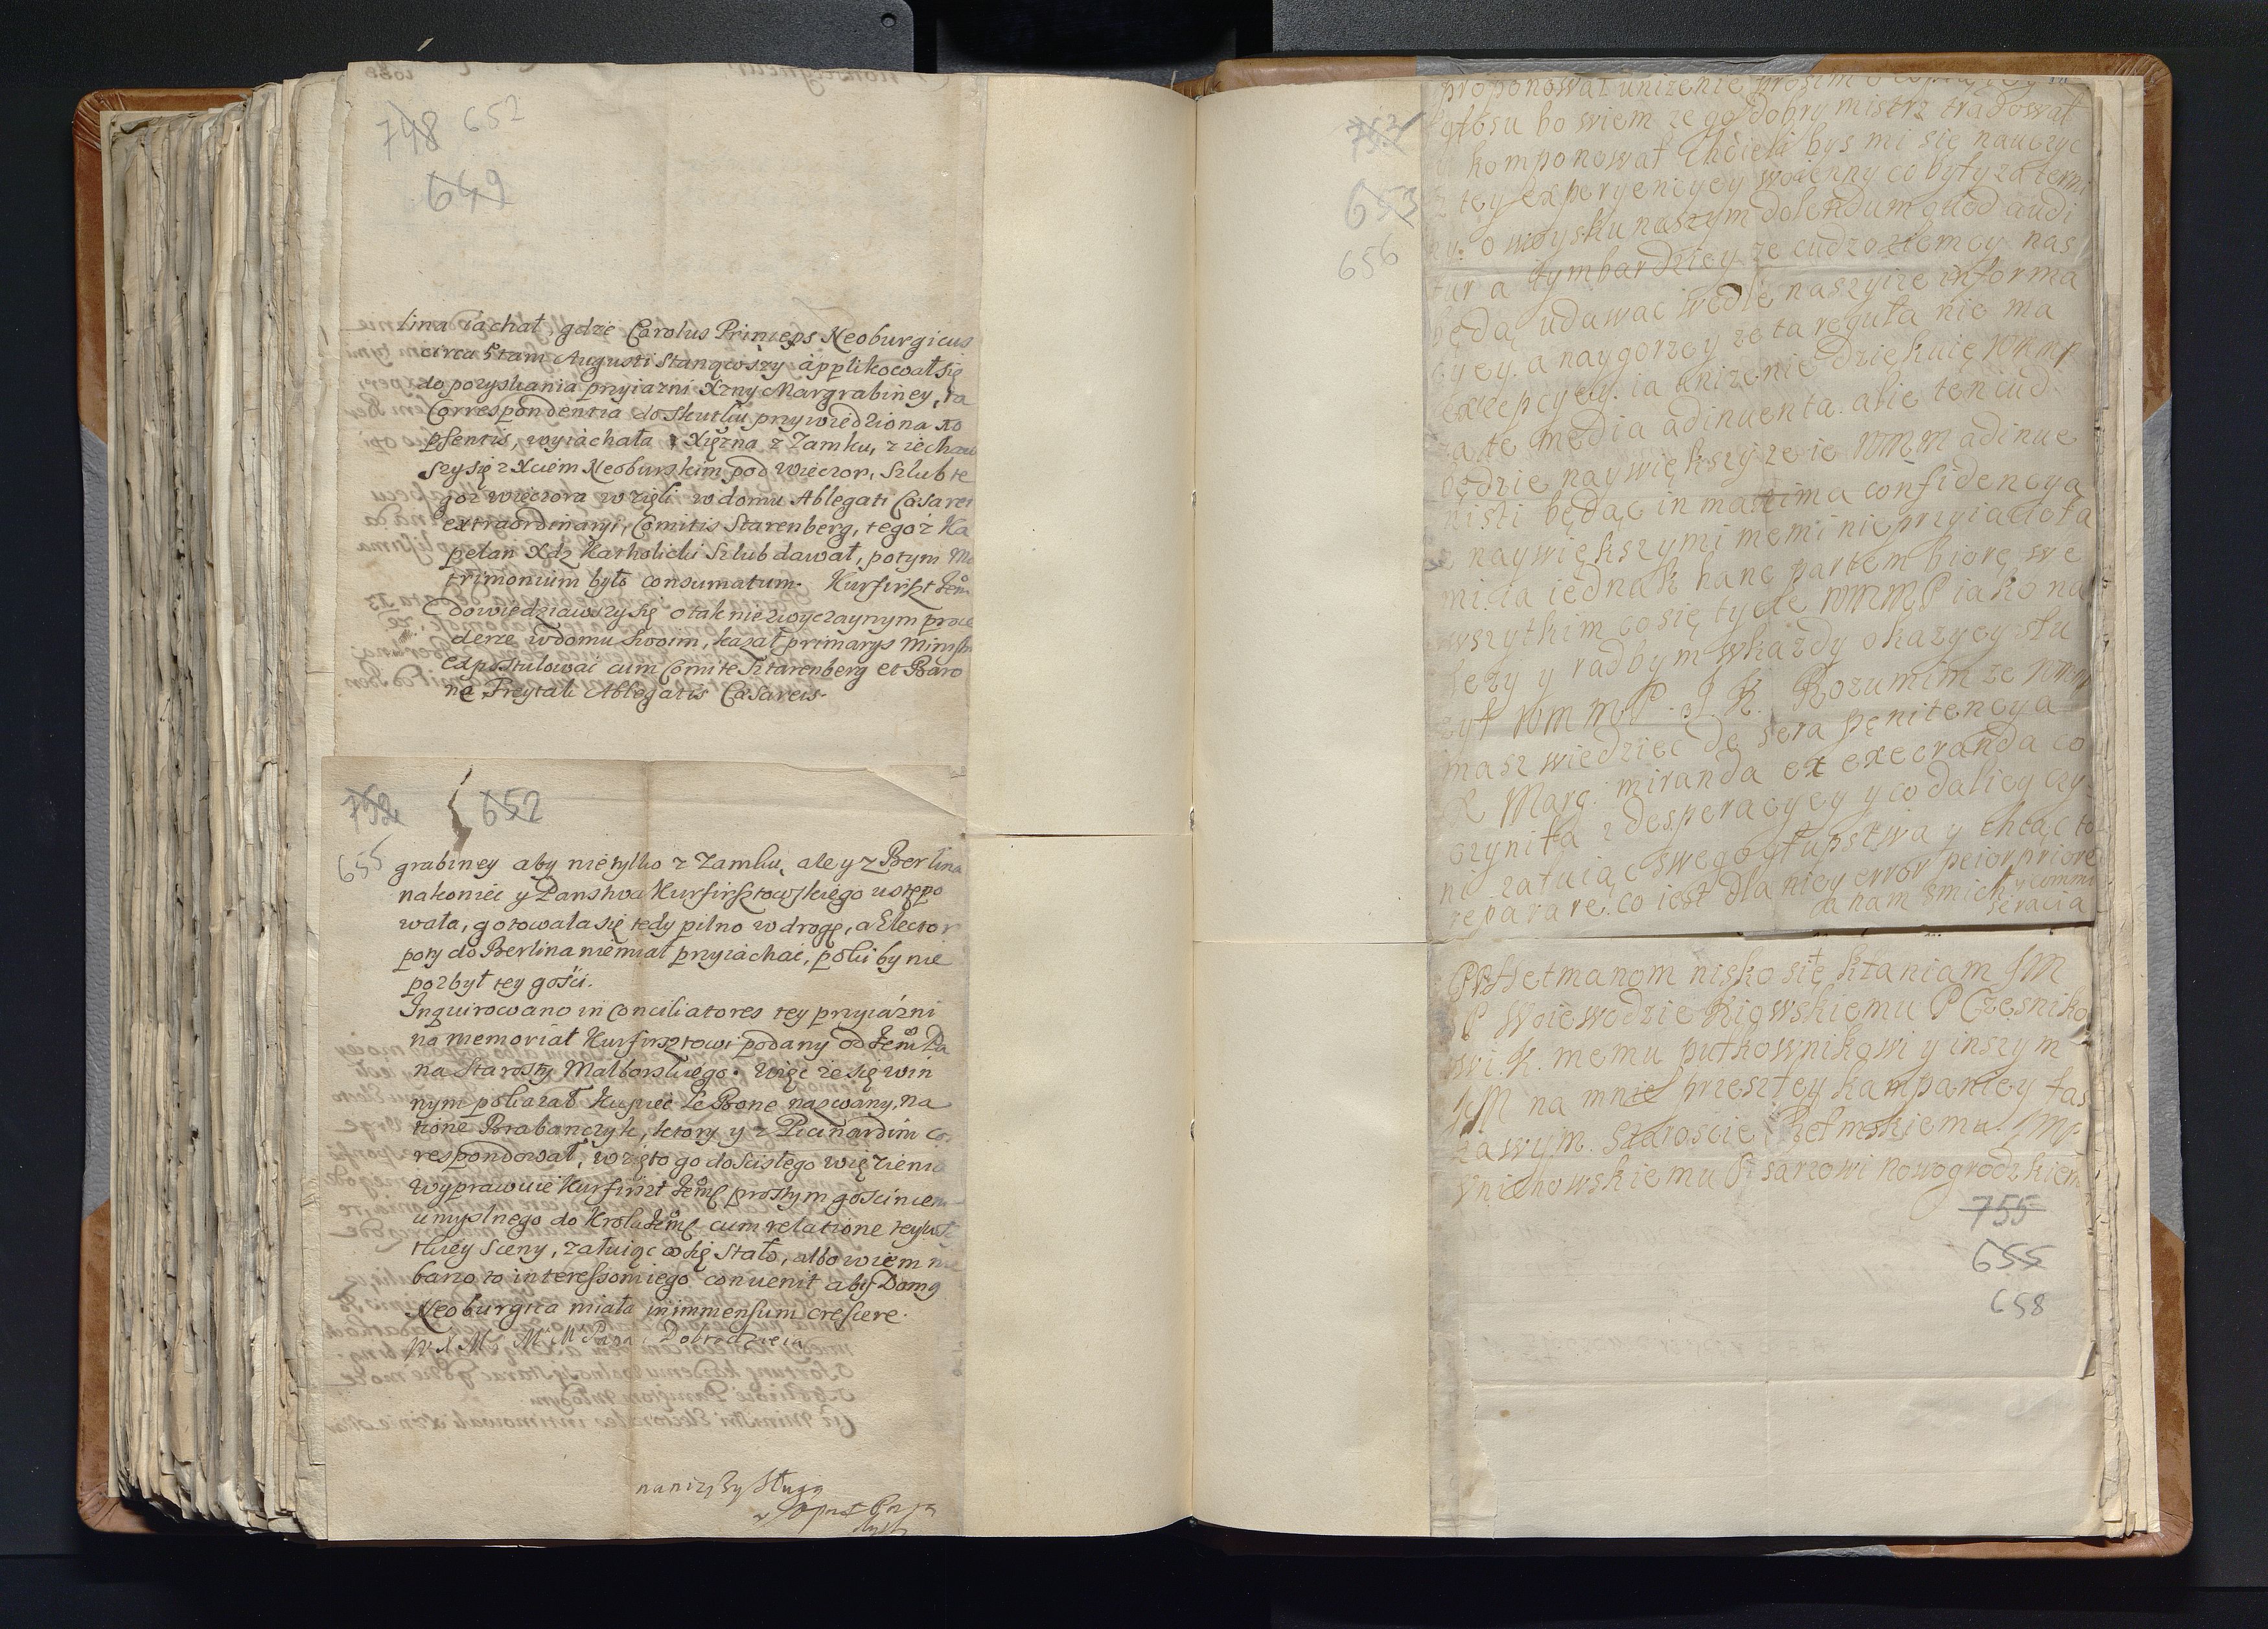 748 652
649
lina iachał, gdzie Carolus Princeps Neoburgicus
circa 5tam Augusti stanąwszy applikował się
do pozyskania przyiazni Xzny Margrabiney, ta
Correspondentia do skutku przywiedziona
psentis, wyiachała Xiężna z Zamku, z iechaw
szy się z Xciem Neoburskim pod wieczor, szlub te
goż wieczora wzięli w domu Ablegati Cæsarei
extraordinaryi, Comitis Starenberg, tegoż Ka
pelan Xdz Katholicki szlub dawał, potym Ma
trimonium było consumatum. Kurfirszt Jem
dowiedziawszy się o tak niezwyczaynym proce
derze w domu swoim, kazał primarys Ministr
expostulować cum Comite Sztarenberg et Baro
ne Freytali Ablegatis Cæsareis.
752 652
655
grabiney aby nietylko z Zamku, ale y z Berlina
nakoniec y Panstwa Kurfirsztowskiego ustępo
wała, gotowała się tedy pilno w drogę, a Elector
poty do Berlina niemiał przyiachać, poki by nie
pozbył tey gości.
Inquirowano in Conciliatores tey przyiaźni
na memoriał Kurfirsztowi podany od Jem Pa
na Starosty Malborskiego. Więc że się win
nym pokazał Kupiec Le Bone nazwany, na
tione Brabanczyk, ktory y z Picinardim Co
respondował, wzięto go do scisłego więzienia
Wyprawuie Kurfirszt Jem prostym goscincem
umyslnego do Krola Jem cum relatione tey
sceny, załuiąc co się stało, albowiem nie
barzo to interessom iego convenit aby Domq
Neoburgica miała in immensum crescere.
W X M M M Pana Dobrodzieia
naniższy Sługa
757
653
656
proponował unizenie prosim o
bo wiem ze go dobry mistrz tradował
komponował Chcieli bys mi się nauczyc
tey experyencyey woienny co były za termi
ny: o woysku naszym dolendum quod audi
tur a tymbardziey ze cudzoziemcy nas
będą udawac wedle naszyize informa
cyey. a naygorzey ze ta reguła nie ma
excepcyey. ia unizenie dziękuię WMMP
za te media adinuenta. alie ten cud
będzie naywiększy ze ie WMM adinue
nisti będąc in maxima confidencya
z naywiększymi memi nieprzyiacioła
mi. ia iednak hanc partem biorę we
wszytkim co się tycze WMMP iako na
lezy y radbym wkazdy okazyey słu
zył WMMP. J. K. Rozumim ze WMM
masz wiedziec de sera pęnitencya
X Marg. miranda et execranda co
czyniła z desperacyey y co daliey czy
ni załuiąc swego głupstwa y chcąc to
reparare. co iest dla niey error peior priore
a nam smich y commi
seracia
PP Hetmanom nisko się kłaniam JM
P Woiewodzie Kiowskiemu P Czesniko
wi. K. memu pułkownikowi y inszym
JM na mnie przeszłey kampaniey łas
kawym. Staroscie Chełmskiemu JMP.
Pisarzowi Nowogrodzkiem
755
655
658